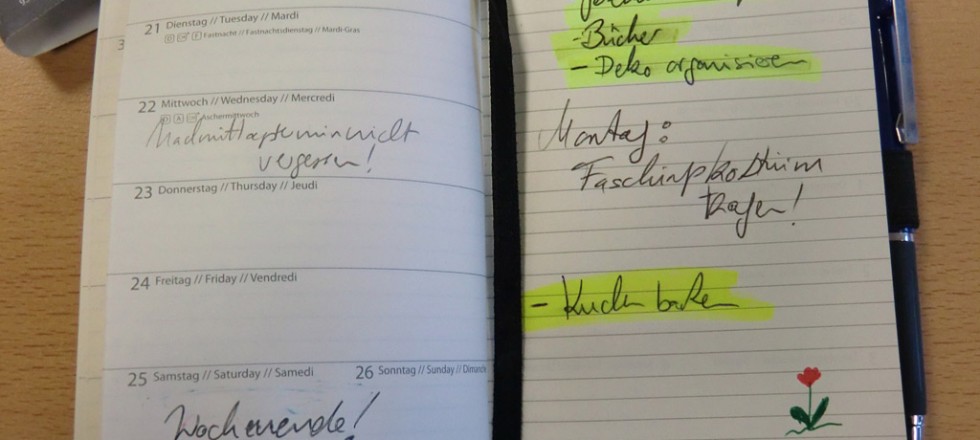 21 Dienstag // Tuesday // Mardi
Fastnacht // Fastnachtsdienstag // Mardi-Gras
3
22 Mittwoch // Wednesday // Mercredi
Aschermittwoch
Nachmittagstermin nicht
vergessen!
23 Donnerstag // Thursday // Jeudi
24 Freitag // Friday // Vendredi
25 Samstag // Saturday // Samedi
26 Sonntag // Sunday // Dimanche
Wochenende!
- Bücher
- Deko organisieren
Montag:
Faschingskostüm
tragen!
- Kuchen backen